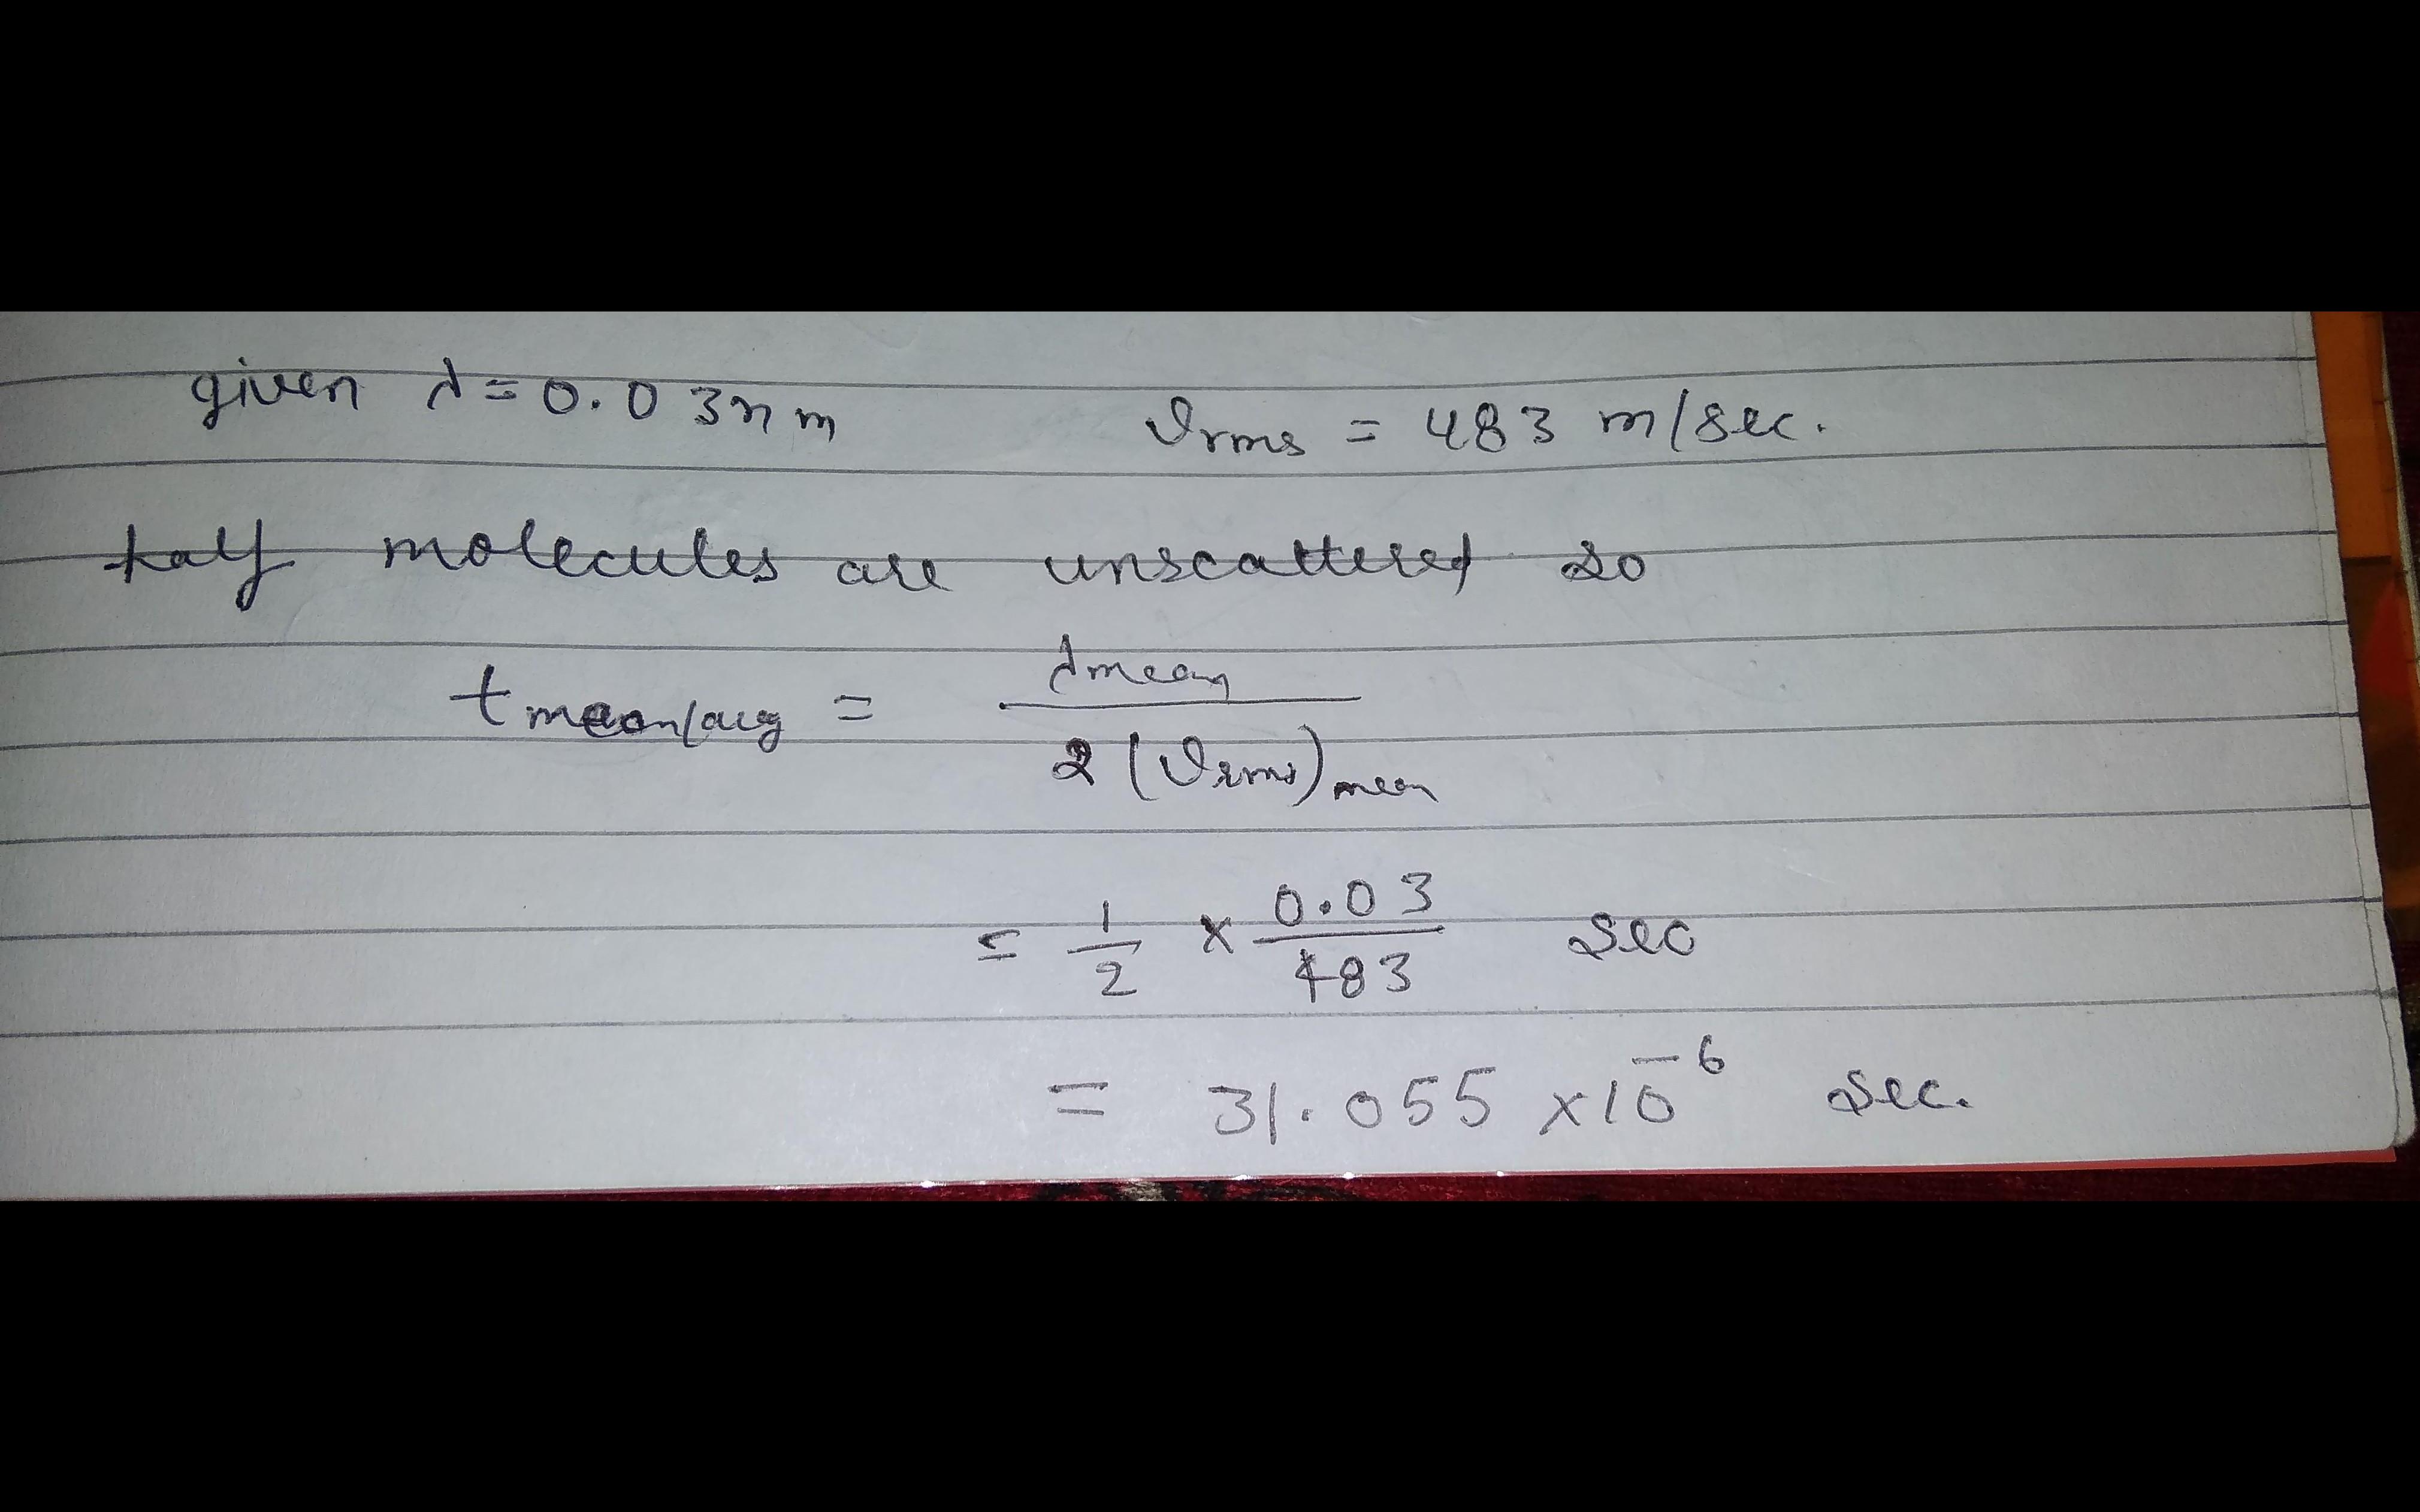 given λ = 0.03nm   vrms = 483 m/sec.
half molecules are unscattered so
tmean/avg = λmean / 2 (vrms)mean
= 1/2 × 0.03/483 sec
= 31.055 × 10^-6 sec.